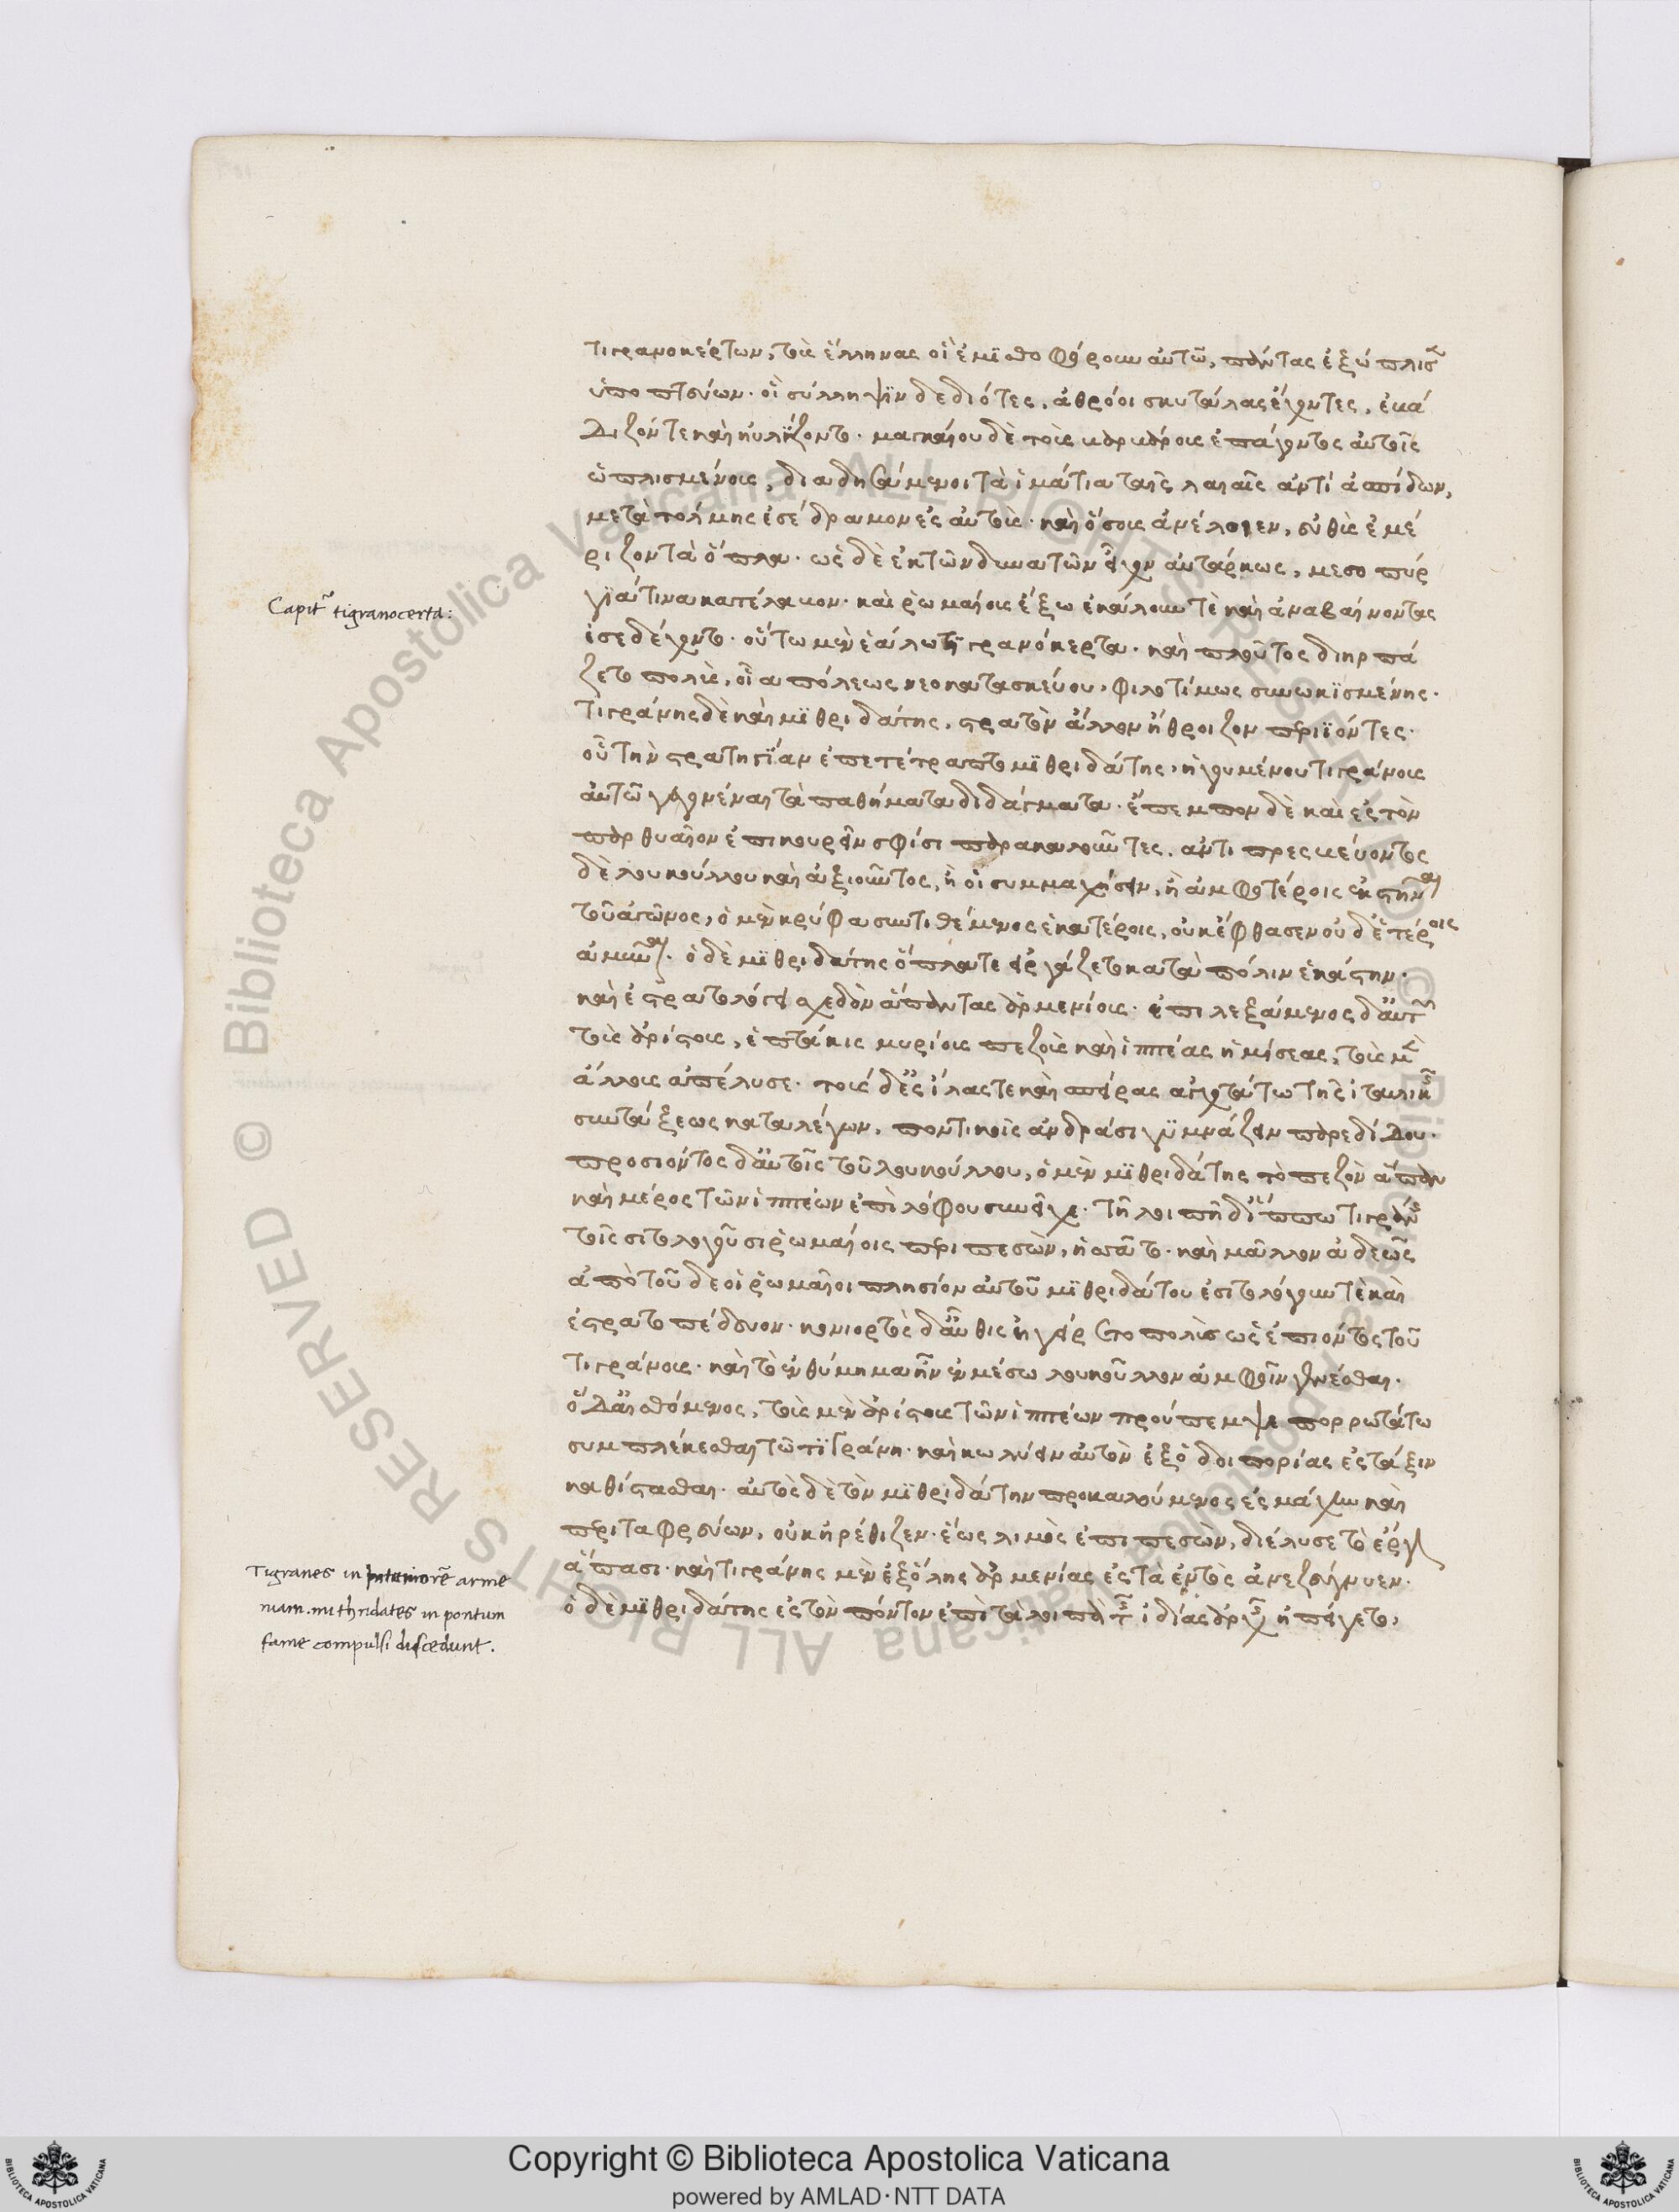 τιγρανοκέρτων, τοὺς ἕλληνας οἳ ἐμισθοφόρουν αὐτῶ, πάντας ἐξώπλισεν
ὑποπτεύων. οἳ σύλληψιν δεδιότες, ἀθρόοι σκυτάλας ἔχοντες, ἐβά
διζόν τε καὶ ηὐλίζοντο. μαγκαίου δὲ τοῖς βαρβάροις ἐπάγοντος αὐτοῖς
ὡπλισμένοις, διαδησάμενοι τὰ ἱμάτια ταῖς λαιαῖς ἀντὶ ἀσπίδων,
μετὰ τόλμης ἐσέδραμον ἐς αὐτούς. καὶ ὅσους ἀνέλοιεν, εὐθὺς ἐμέ
ριζον τὰ ὅπλα. ὡς δὲ ἐκ τῶν δυνατῶν εἶχον αὐτάρκως, μεσοπύρ
γιά τινα κατέλαβον. καὶ ῥωμαίους ἔξω ἐκάλουν τὲ καὶ ἀναβαίνοντας
ἐσεδέχοντο. οὕτω μὲν ἑάλω τιγρανόκερτα. καὶ πλοῦτος διηρπά
ζετο πολὺς, οἷα πόλεως νεοκατασκεύου, φιλοτίμως συνωκισμένης.
τιγράνης δὲ καὶ μιθριδάτης, στρατὸν ἄλλον ἤθροιζον περιϊόντες.
οὗ τὴν στρατηγίαν ἐπετέτραπτο μιθριδάτης, ἡγουμένου τιγράνους
αὐτῶ γεγονέναι τὰ παθήματα διδάγματα. ἔπεμπον δὲ καὶ ἐς τὸν
παρθυαῖον ἐπικουρεῖν σφίσι παρακαλοῦντες. ἀντιπρεσβεύοντος
δὲ λουκούλλου καὶ ἀξιοῦντος, ἢ οἱ συμμαχήσειν, ἢ ἀμφοτέροις ἐκστῆναι
τοῦ ἀγῶνος, ὁ μὲν κρύφα συντιθέμενος ἑκατέροις, οὐκ ἔφθασεν οὐδετέροις
ἀμῦναι. ὁ δὲ μιθριδάτης ὅπλα τε εἰργάζετο κατὰ πόλιν ἑκάστην.
καὶ ἐστρατολόγει σχεδὸν ἅπαντας ἀρμενίους. ἐπιλεξάμενος δ' αὐτῶν
τοὺς ἀρίστους, ἑπτάκις μυρίους πεζοὺς καὶ ἱππέας ἡμίσεας, τοὺς μὲν
ἄλλους ἀπέλυσε. τοὺς δ' ἐς ἴλας τε καὶ σπείρας ἀγχοτάτω τῆς ἰταλικῆς
συντάξεως καταλέγων, ποντικοῖς ἀνδράσι γυμνάζειν παρεδίδου.
προσιόντος δ' αὐτοῖς τοῦ λουκούλλου, ὁ μὲν μιθριδάτης τὸ πεζὸν ἅπαν
καὶ μέρος τῶν ἱππέων ἐπὶ λόφου συνεῖχε. τῆ λοιπῆ δ' ἵππω τιγράνης
τοῖς σιτολογοῦσι ῥωμαίοις περιπεσὼν, ἡσσᾶτο. καὶ μᾶλλον ἀδεῶς
ἀπὸ τοῦδε οἱ ῥωμαῖοι πλησίον αὐτοῦ μιθριδάτου ἐσιτολόγουν τὲ καὶ
ἐστρατοπέδευον. κονιορτὸς δ' αὖθις ἠγείρετο πολὺς ὡς ἐπιόντος τοῦ
τιγράνους. καὶ τὸ ἐνθύμημα ἦν ἐν μέσω λουκοῦλλον ἀμφοῖν γενέσθαι.
ὃ δ' αἰσθόμενος, τοὺς μὲν ἀρίστους τῶν ἱππέων προύπεμψε πορρωτάτω
συμπλέκεσθαι τῶ τιγράνη. καὶ κωλύειν αὐτὸν ἐξ ὁδοιπορίας ἐς τάξιν
καθίστασθαι. αὐτὸς δὲ τὸν μιθριδάτην προκαλούμενος ἐς μάχην καὶ
περιταφρεύων, οὐκ ἠρέθιζεν. ἕως λιμὸς ἐπιπεσὼν, διέλυσε τὸ ἔργον
ἅπασι. καὶ τιγράνης μὲν ἐξ ὅλης ἀρμενίας ἐς τὰ ἐντὸς ἀνεζεύγνυεν.
ὁ δὲ μιθριδάτης ἐς τὸν πόντον ἐπὶ τὰ λοιπὰ τῆς ἰδίας ἀρχῆς ἠπείγετο,
Capit~ tigranocerta:
Tigranes in interiorē arme
niam. mithridates in pontum
fame compulsi discedunt.
© Biblioteca Apostolica Vaticana ALL RIGHTS RESERVED
Copyright © Biblioteca Apostolica Vaticana
powered by AMLAD·NTT DATA
BIBLIOTECA APOSTOLICA VATICANA
BIBLIOTECA APOSTOLICA VATICANA